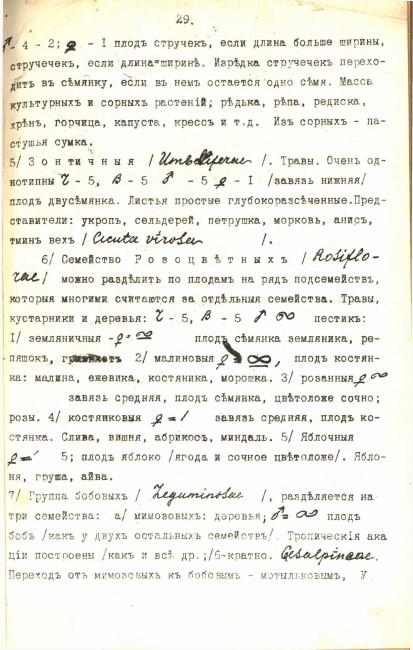 29.
♂ - 4 - 2; ♀ - I плодъ стручекъ, если длина больше ширины,
стручечекъ, если длина=ширинѣ. Изрѣдка стручечек перехо-
дитъ въ сѣмянку, если въ немъ остается одно сѣмя. Масса
культурныхъ и сорныхъ растеній; рѣдька, рѣпа, редиска,
хрѣнъ, горчица, капуста, крессъ и т.д. Изъ сорныхъ - па-
стушья сумка.
5/ З о н т и ч н ы я / Umbelliferae /. Травы. Очень од-
нотипны Ч - 5, В - 5 ♂ - 5 ♀ - I /завязь нижняя/
плодъ двусѣмянка. Листья простые глубокоразсѣченные.Пред-
ставители: укропъ, сельдерей, петрушка, морковь, анисъ,
тминъ вехъ / Cicuta virosa /.
6/ Семейство Р о з о ц в ѣ т н ы х ъ / Rosiflo-
rae / можно раздѣлить по плодамъ на рядъ подсемействъ,
которыя многими считаются за отдѣльныя семейства. Травы,
кустарники и деревья: Ч - 5, В - 5 ♂ ∞ пестикъ:
I/ земляничныя - ♀ = ∞ плодъ сѣмянка земляника, ре-
пяшокъ, 2/ малиновыя ♀ = ∞, плодъ костян-
ка: малина, ежевика, костяника, морошка. 3/ розанныя ♀ ∞
завязь средняя, плодъ сѣмянка, цвѣтоложе сочно;
розы. 4/ костянковыя ♀ = 1 завязь средняя, плодъ ко-
стянка. Слива, вишня, абрикосъ, миндаль. 5/ Яблочныя
♀ = 5; плодъ яблоко /ягода и сочное цвѣтоложе/. Ябло-
ня, груша, айва.
7/ Группа бобовыхъ / Leguminosae /, раздѣляется на
три семейства: а/ мимозовыхъ: деревья; ♂ = ∞ плодъ
бобъ /какъ у двухъ остальныхъ семействъ/. Тропическія ака
ціи построены /какъ и всѣ др.;/5-кратно. Cesalpineae.
Переходъ отъ мимозовыхъ къ бобовымъ - мотыльковымъ, У